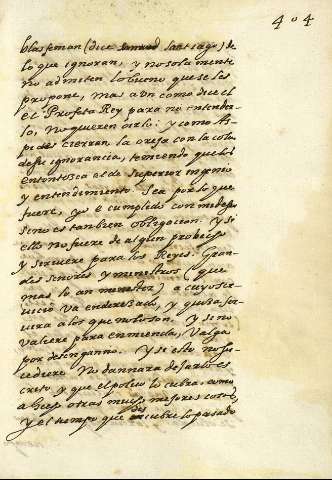 404
blasfeman (dice Santiago) de
lo que ignoran, y no sola mente
no admiten lo bueno que se les
propone, mas aun como dice el
el Profeta Rey para no entender
lo, no quieren oirlo: y como As
pides cierran la oreja con la cola
de su ignorancia, temiendo que los
el de Superior ingenio
y entendimiento Sea por lo que
fuere, yo e cumplido con mi deseo
si no es tanbien obligacion. Y si
ello no fuere de algun probecho
y serviere para los Reyes. Gran
des señores y menistros (que
mas lo an menester) a cuyo ser
uicio va enderezado, y quiza ser
uira a los que no lo son. Y si no
valiere para enmienda, Valga
por desenganno. Y si esto no su
cediere No dannara dejarlo es
crito y que el poluo lo cubra, como
a hecho otras muchas mejores cosas
y el tiempo que descubre lo pasado